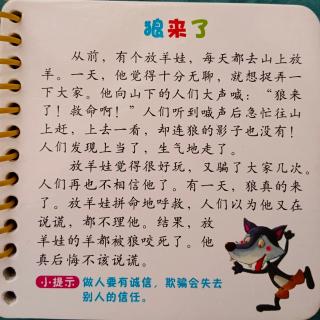 狼来了
从前，有个放羊娃，每天都去山上放
羊。一天，他觉得十分无聊，就想捉弄一
下大家。他向山下的人们大声喊：“狼来
了！救命啊！”人们听到喊声后急忙往山
上赶，上去一看，却连狼的影子也没有！
人们发现上当了，生气地走了。
放羊娃觉得很好玩，又骗了大家几次。
人们再也不相信他了。有一天，狼真的来
了。放羊娃拼命地呼救，人们以为他又在
说谎，都不理他。结果，放
羊娃的羊都被狼咬死了。他
真后悔不该说谎。
小提示 做人要有诚信，欺骗会失去
别人的信任。